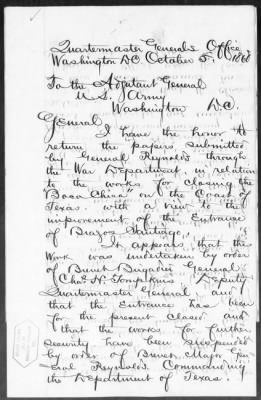 Quartermaster General's Office,
Washington D.C. October 5, 1868
To the Adjutant General
U.S. Army
Washington D.C.
General
I have the honor to
return the papers submitted
by General Reynolds through
the War Department, in relation
to the works for closing the
"Boca Chica" on the Coast of
Texas, with a view to the
improvement of the Entrance
of Brazos Santiago.
It appears that the
Work was undertaken by order
of Brevet Brigadier General
Chas. H. Tompkins, Deputy
Quartermaster General, and
that the Entrance has been
for the present closed and
that the works for further
security have been suspended
by order of Brevet Major Gen-
eral Reynolds Commanding
the Department of Texas.